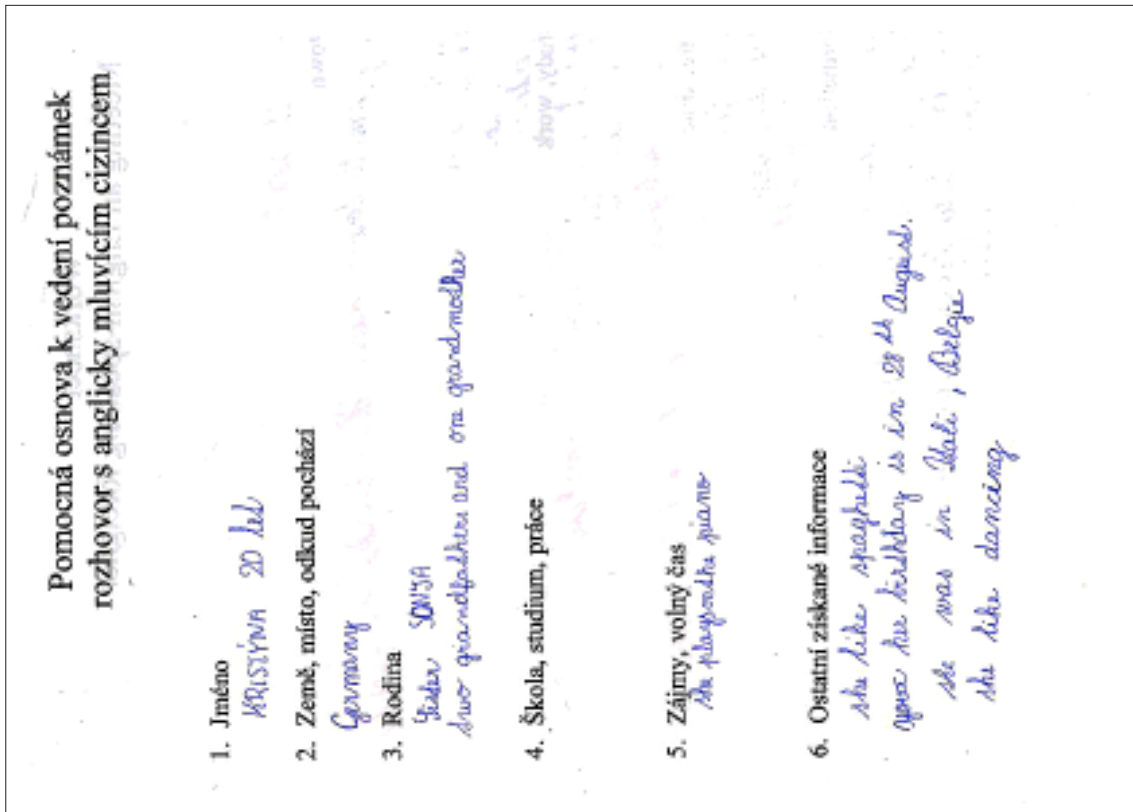 Pomocná osnova k vedení poznámek
rozhovor s anglicky mluvícím cizincem
1. Jméno
KRISTÝNA 20 let
2. Země, místo, odkud pochází
Germany
3. Rodina
Sister SONJA
two grandfathers and one grandmother
4. Škola, studium, práce
5. Zájmy, volný čas
she plays piano
6. Ostatní získané informace
she like spaghetti
her birthday is in 28 th August.
she was in Itali, Belgie
she like dancing